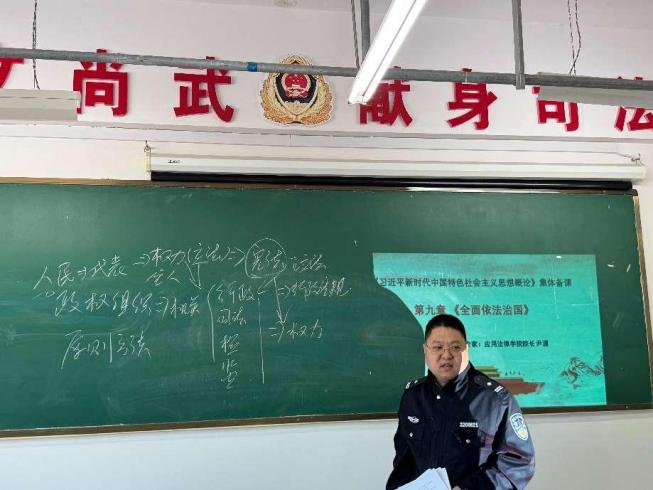 尚武 献身司法
人民 代表 ⇒权力(立法)⇒宪法 立法
主人
政权组织⇒机关(行政 ⇒行政法规
司法
检 ⇒权力
监
原则
《习近平新时代中国特色社会主义思想概论》集体备课
第九章《全面依法治国》
家：应用法律学院院长 尹
2200621